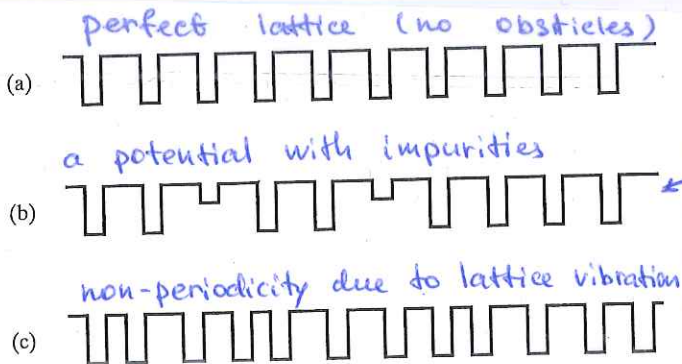 perfect lattice (no obsticles)
(a)
a potential with impurities
(b)
non-periodicity due to lattice vibration
(c)